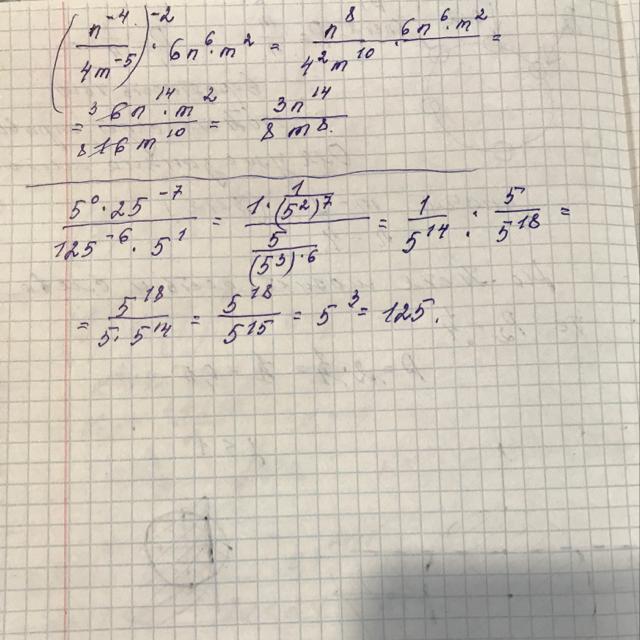 (n⁻⁴ / 4m⁻⁵)⁻² · 6n⁶ · m² = n⁸ / 4²m¹⁰ · 6n⁶ · m² =
= ³6n¹⁴ · m² / ₈16m¹⁰ = 3n¹⁴ / 8m⁸.
5⁰ · 25⁻⁷ / 125⁻⁶ · 5¹ = 1 · 1/(5²)⁷ / 5/(5³)·⁶ = 1/5¹⁴ : 5/5¹⁸ =
= 5¹⁸ / 5 · 5¹⁴ = 5¹⁸ / 5¹⁵ = 5³ = 125.